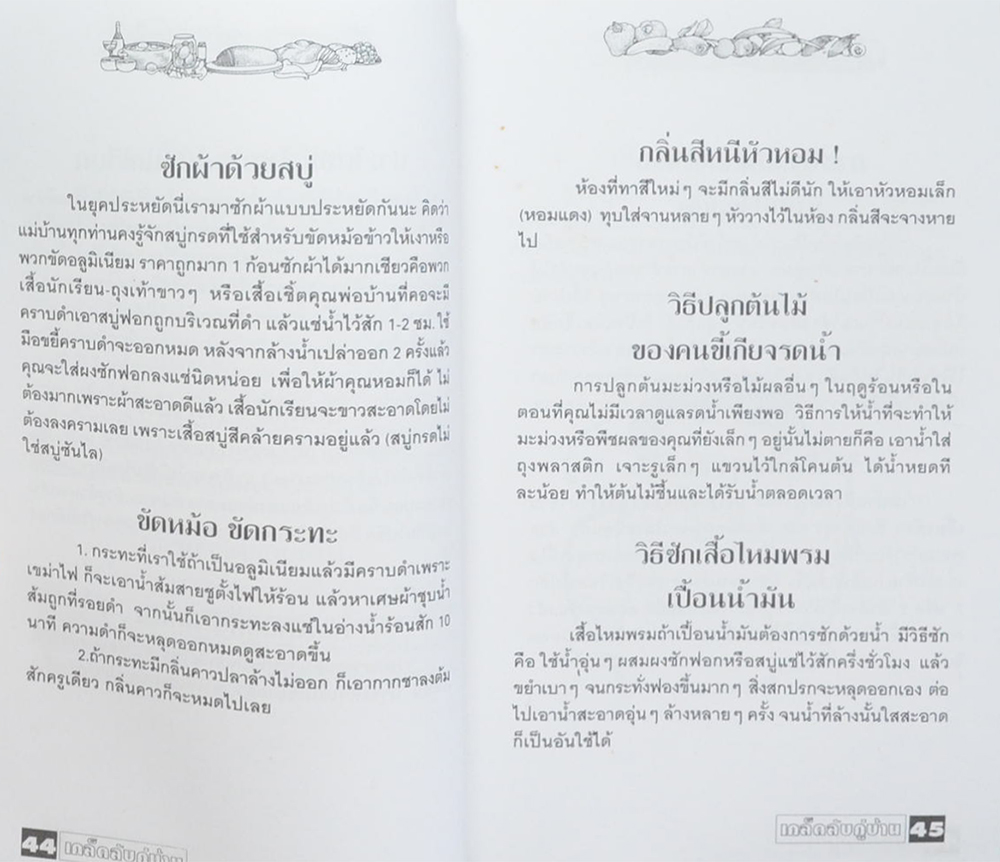 ซักผ้าด้วยสบู่
ในยุคประหยัดนี่เรามาซักผ้าแบบประหยัดกันนะ คิดว่า
แม่บ้านทุกท่านคงรู้จักสบู่กรดที่ใช้สำหรับขัดหม้อข้าวให้เงาหรือ
พวกขัดอลูมิเนียม ราคาถูกมาก 1 ก้อนซักผ้าได้มากเชียวคือพวก
เสื้อนักเรียน-ถุงเท้าขาวๆ หรือเสื้อเชิ้ตคุณพ่อบ้านที่คอจะมี
คราบดำเอาสบู่ฟอกถูบริเวณที่ดำ แล้วแช่น้ำไว้สัก 1-2 ชม. ใช้
มือขยี้คราบดำจะออกหมด หลังจากล้างน้ำเปล่าออก 2 ครั้งแล้ว
คุณจะใส่ผงซักฟอกลงแช่นิดหน่อย เพื่อให้ผ้าคุณหอมก็ได้ ไม่
ต้องมากเพราะผ้าสะอาดดีแล้ว เสื้อนักเรียนจะขาวสะอาดโดยไม่
ต้องลงครามเลย เพราะเสื้อสบู่สีคล้ายครามอยู่แล้ว (สบู่กรดไม่
ใช่สบู่ซันไล)
ขัดหม้อ ขัดกระทะ
1. กระทะที่เราใช้ถ้าเป็นอลูมิเนียมแล้วมีคราบดำเพราะ
เขม่าไฟ ก็จะเอาน้ำส้มสายชูตั้งไฟให้ร้อน แล้วหาเศษผ้าชุบน้ำ
ส้มถูกที่รอยดำ จากนั้นก็เอากระทะลงแช่ในอ่างน้ำร้อนสัก 10
นาที ความดำก็จะหลุดออกหมดดูสะอาดขึ้น
2.ถ้ากระทะมีกลิ่นคาวปลาล้างไม่ออก ก็เอากากชาลงต้ม
สักครูเดียว กลิ่นคาวก็จะหมดไปเลย
44 เคล็ดลับคู่บ้าน
กลิ่นสีหนีหัวหอม !
ห้องที่ทาสีใหม่ๆ จะมีกลิ่นสีไม่ดีนัก ให้เอาหัวหอมเล็ก
(หอมแดง) ทุบใส่จานหลายๆ หัววางไว้ในห้อง กลิ่นสีจะจางหาย
ไป
วิธีปลูกต้นไม้
ของคนขี้เกียจรดน้ำ
การปลูกต้นมะม่วงหรือไม้ผลอื่นๆ ในฤดูร้อนหรือใน
ตอนที่คุณไม่มีเวลาดูแลรดน้ำเพียงพอ วิธีการให้น้ำที่จะทำให้
มะม่วงหรือพืชผลของคุณที่ยังเล็กๆ อยู่นั้นไม่ตายก็คือ เอาน้ำใส่
ถุงพลาสติก เจาะรูเล็กๆ แขวนไว้ใกล้โคนต้น ได้น้ำหยดที
ละน้อย ทำให้ต้นไม้ชื้นและได้รับน้ำตลอดเวลา
วิธีซักเสื้อไหมพรม
เปื้อนน้ำมัน
เสื้อไหมพรมถ้าเปื่อนน้ำมันต้องการซักด้วยน้ำ มีวิธีซัก
คือ ใช้น้ำอุ่นๆ ผสมผงซักฟอกหรือสบู่แช่ไว้สักครึ่งชั่วโมง แล้ว
ขยำเบาๆ จนกระทั่งฟองขึ้นมากๆ สิ่งสกปรกจะหลุดออกเอง ต่อ
ไปเอาน้ำสะอาดอุ่นๆ ล้างหลายๆ ครั้ง จนน้ำที่ล้างนั้นใสสะอาด
ก็เป็นอันใช้ได้
เคล็ดลับคู่บ้าน 45